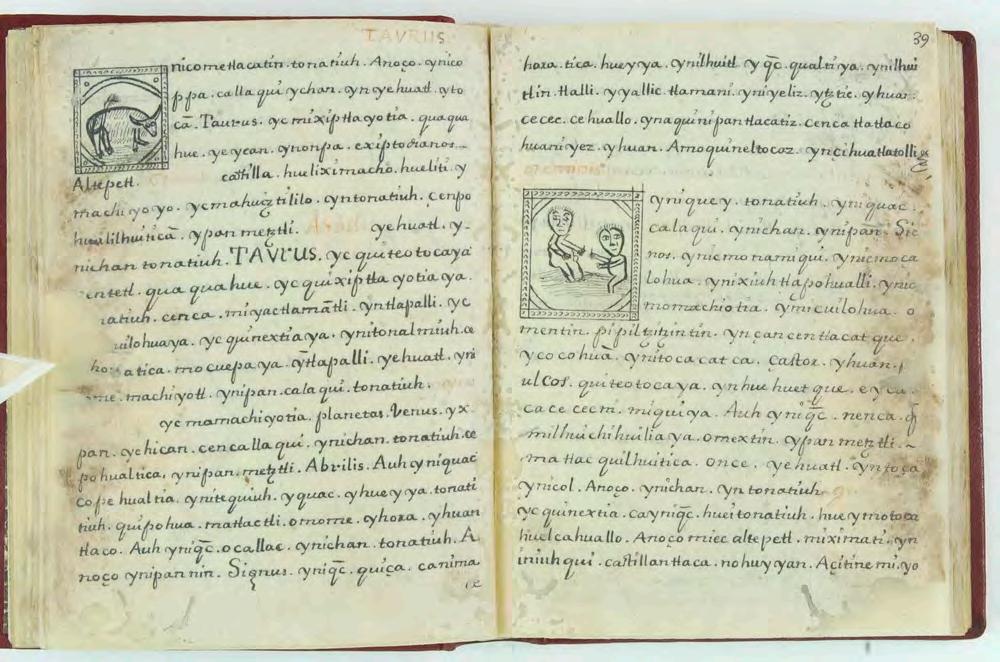 TAVRUS.
nicometlacatin. tonatiuh. Anoço. ynico
ppa. callaqui ychan. yn yehuatl. yto
cā. Taurus. yc mixiptlayotia. quaqua
hue. yeycan. ynonpa. exiptodianos
Altepetl. castilla. huelixmacho. hueliti. y
machiyoyo. ycmahuiztililo. yntonatiuh. cenpo
hualilhuiticā. ypan metztli. yehuatl. y
nichan tonatiuh. TAVRUS. yc quiteotocaya
centetl. quaquahue. yc quixiptlayotiaya.
tonatiuh. cenca. miyactlamātli. yntlapalli. yc
quilohuaya. yc quinextiaya. ynitonalmiuh.
atica. mocuepaya. ȳtlapalli. yehuatl. yni
machiyotl. ynipan. calaqui. tonatiuh.
yc mamachiyotia. planetas. Venus. yx
pan. yehican. cencallaqui. ynichan. tonatiuh. ce
pohualtica, ynipan. metztli. Abrilis. Auh yniquac
copehualtia. ynitequiuh. yquac. yhueyya. tonati
tiuh. quipohua. matlactli. omome. yhoxa. yhuan
tlaco. Auh yniq̄c. ocallac. ynichan. tonatiuh. A
noço ynipannin. Signus. yniq̄c. quiça. canima
ce
39
hoxa. tica. hueyya. cynilhuitl y q̄c. qualtiya. ynilhui
tlin. tlalli. yyallic. tlamani. yniyeliz. ytztic. yhuan
cecec. cehuallo. ynaquinipantlacatiz. cenca tlatlaco
huaniyez. yhuan. Amoquineltocoz. yncihuatlatolli
yniquey. tonatiuh. yniquac.
calaqui. ynichan. ynipan. Sic
nos. ynicmonamiqui. ynicmoca
lohua. ynixiuhtlapohualli. ynic
momachiotia. ynicuilohua. o
mentin. pipiltzitzintin. yncancentlacatque.
ycocohuā. ynitocacatca. Castor. yhuan.
ulCos. quiteotocaya. ynhuehuetque. eyca
cacececm. miquiya. Auh yniq̄c. nenca. q̄
milhuichihuiliaya. omextin. ypan metztli.
matlacquilhuitica. once. yehuatl. yntoca
ynicol. Anoço. ynichan. yn tonatiuh
yc quinextia. cayniq̄c. hueitonatiuh. hueymotoca
huelcahuallo. Anoço miec altepetl. miximati. yn
iniuhqui. castillantlaca. nohuyyan. Açitinemi. yo